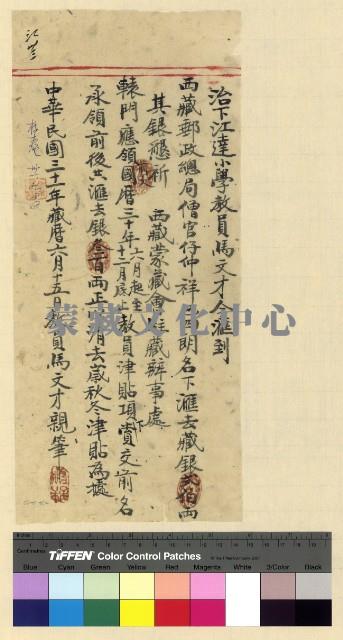 治下江達小學教員馬文才今滙到
西藏郵政總局僧官仔仲祥巴明名下滙去藏銀弍佰两
其銀懇祈 西藏蒙藏會駐藏辦事處
轅門應領國曆三十年六月起至十二月底教員津貼項下賞交前名
承領前後共滙去銀叁百两正有去歲秋冬津貼為據
中華民國三十一年藏曆六月十五日教員馬文才親筆
蒙藏文化中心
Inches
Centimetres
TIFFEN Color Control Patches
Blue Cyan Green Yellow Red Magenta White 3/Color Black